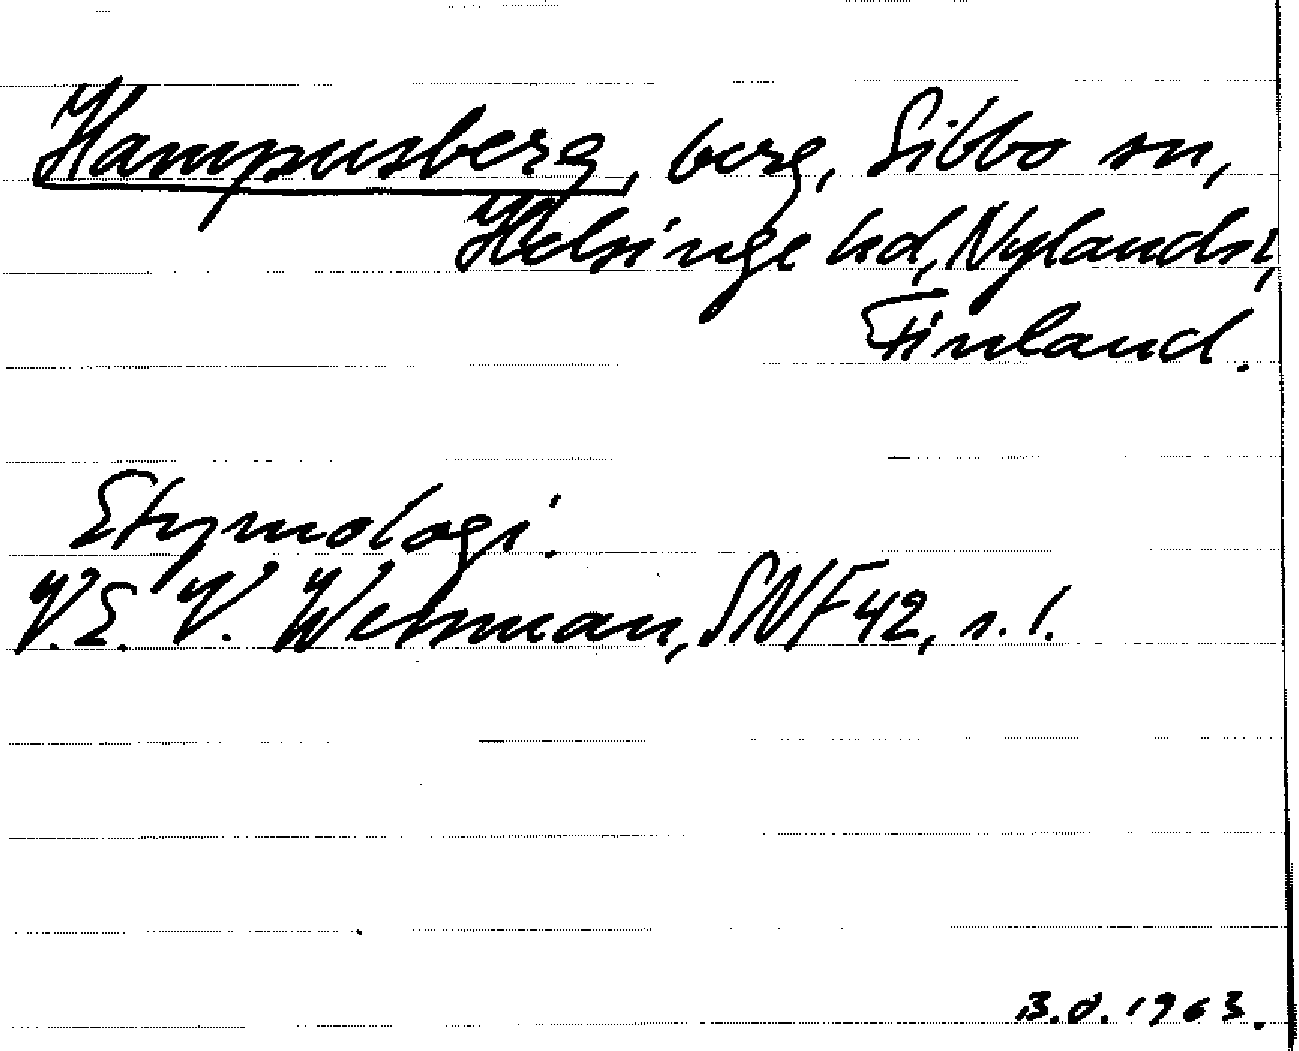 Hampusberg, berg, Sibbo sn,
Helsinge hd, Nylands l,
Finland.
Etymologi.
V.E.V. Wessman, SNF 42, s. 1.
B.O. 1963.